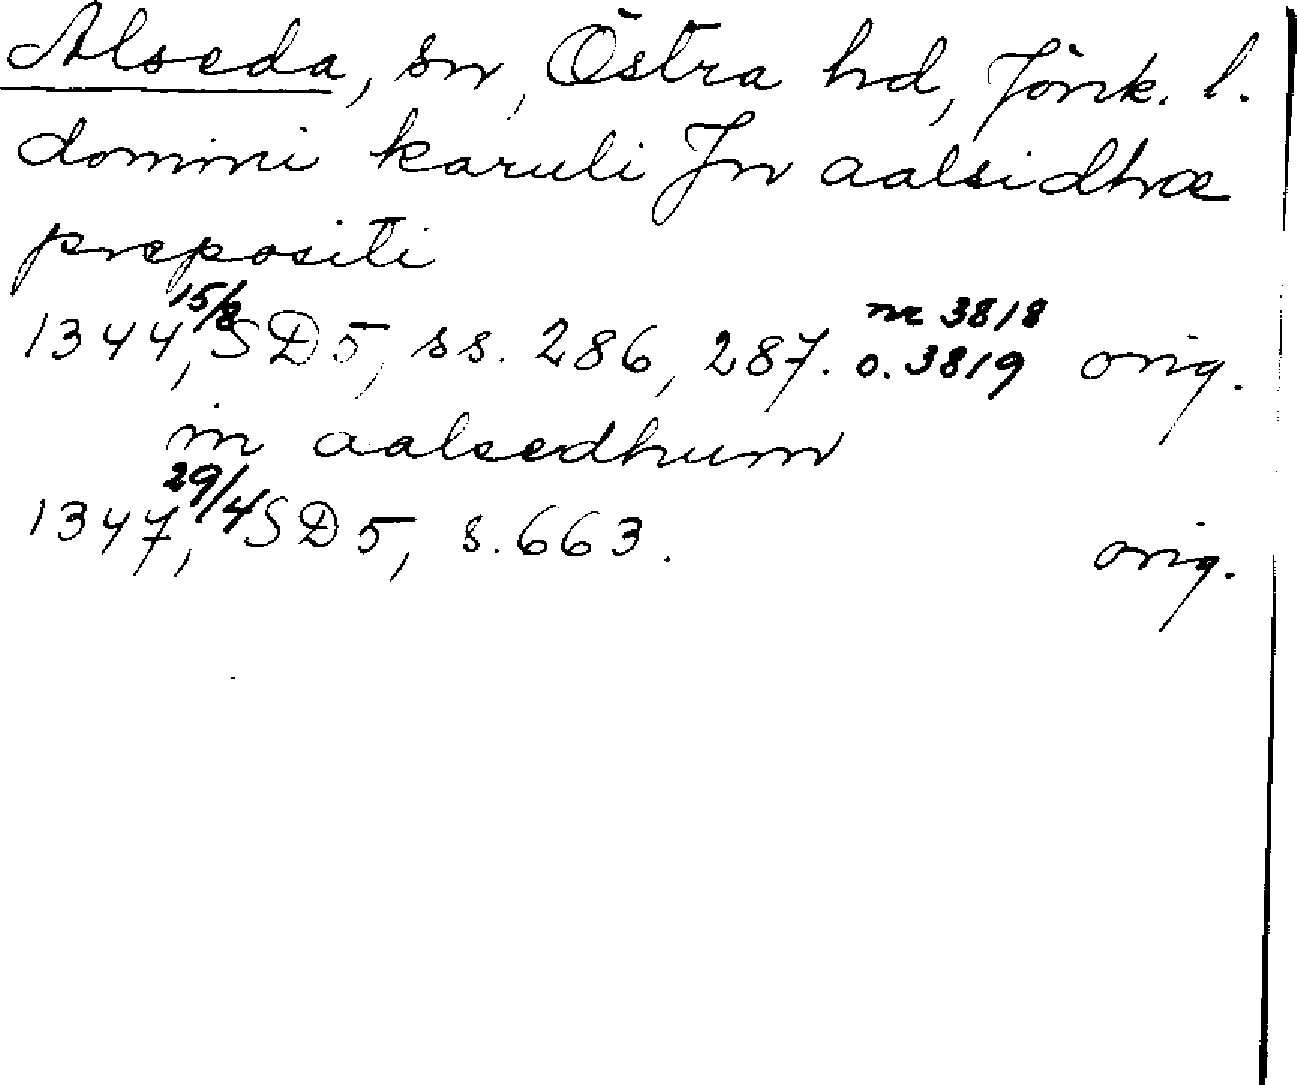 Alseda, sn, Östra hd, Jönk. l.
domini karuli Jn aalsidhæ
prepositi
1344 15/8, SD 5, ss. 286, 287. nr 3818 o. 3819 orig.
in aalsedhum
1347 29/4, SD 5, s. 663. orig.